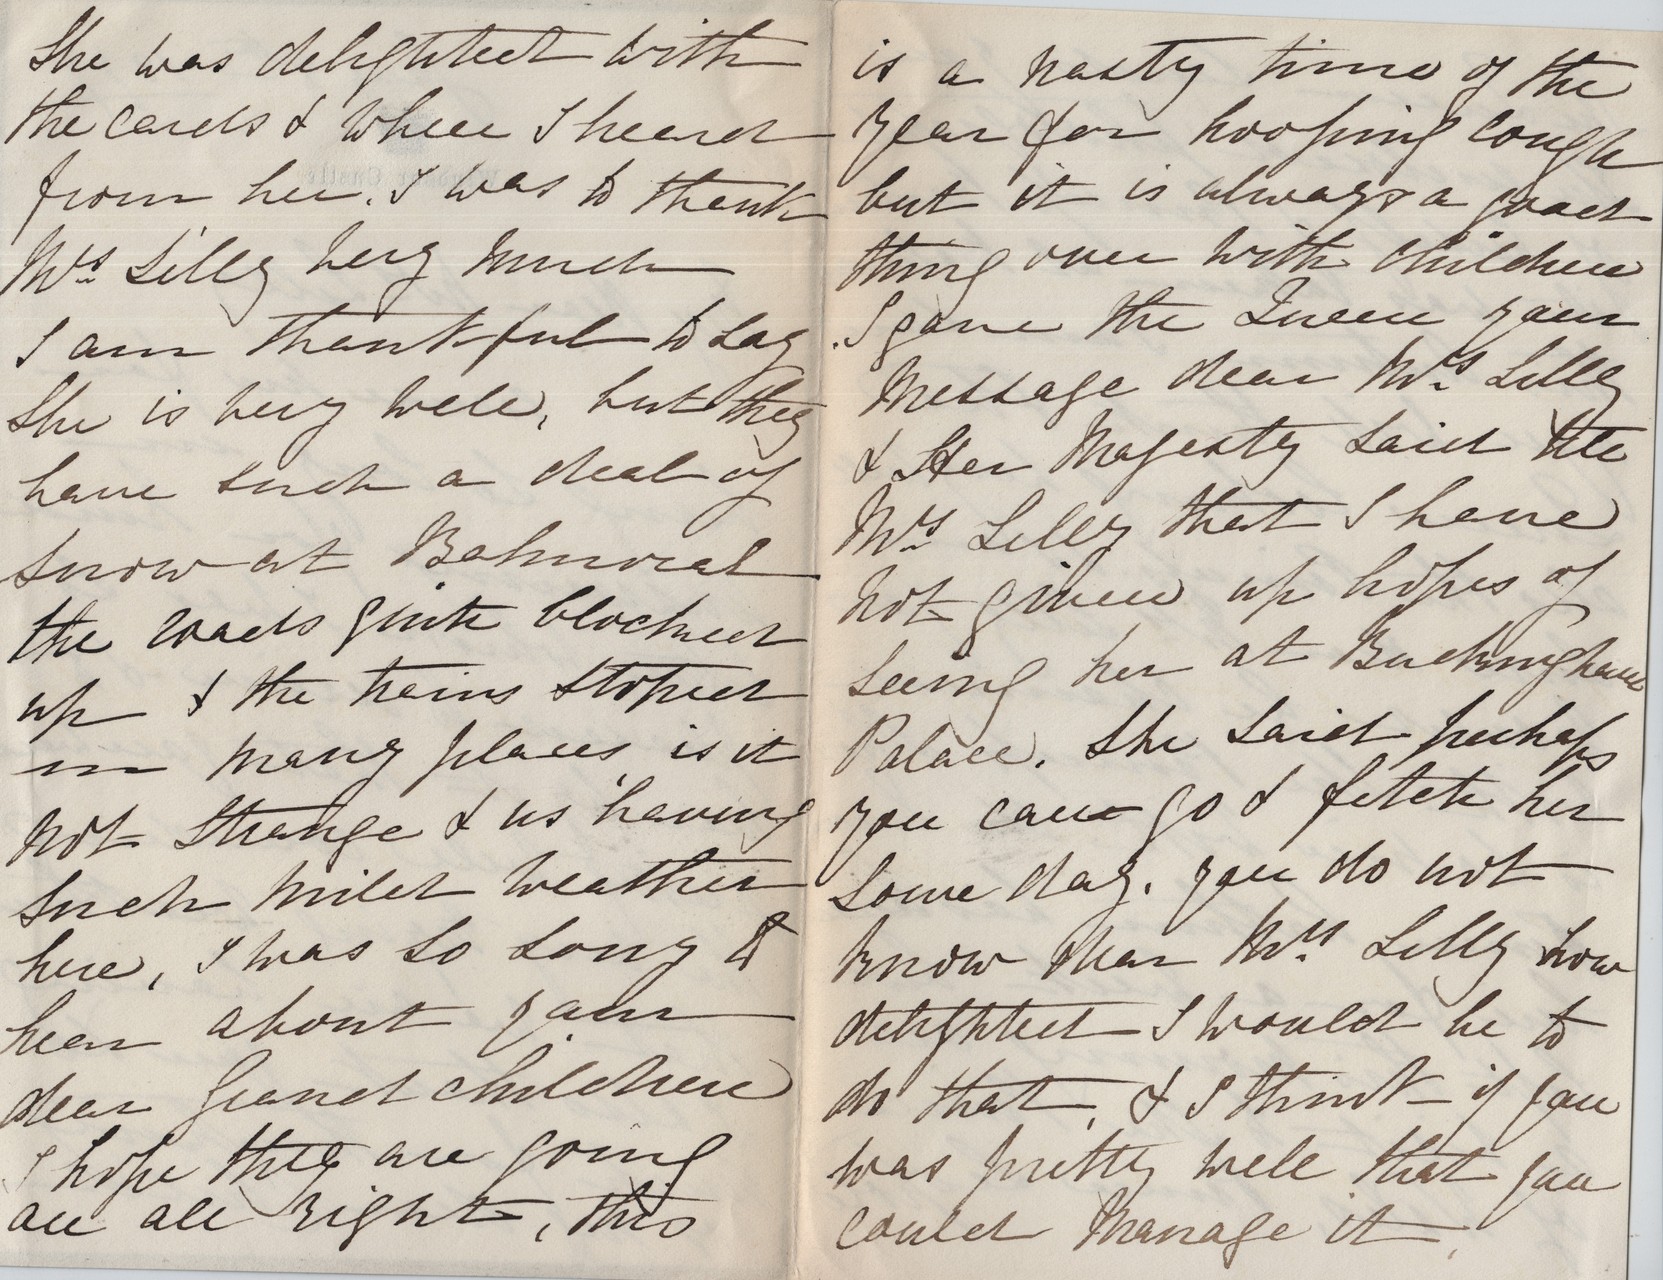 She was delighted with
the cards & when I heard
from her. I was to thank
Mrs. Lilly very much
I am thankful to say
She is very well, but they
have such a deal of
snow at Balmoral
the roads quite blocked
up & the trains stoped
in many places, is it
not strange & us having
such mild weather
here, I was so sorry to
hear about your
dear Grand children
I hope they are going
on all right, this
is a nasty time of the
year for hooping cough
but it is always a good
thing over with children
I gave the Queen your
Message dear Mrs. Lilly
& Her Majesty said tell
Mrs. Lilly that I have
not given up hopes of
seeing her at Buckingham
Palace. She said perhaps
you can go & fetch her
some day. you do not
know dear Mrs. Lilly how
delighted I would be to
do that, & I think if you
was pretty well that you
could manage it.